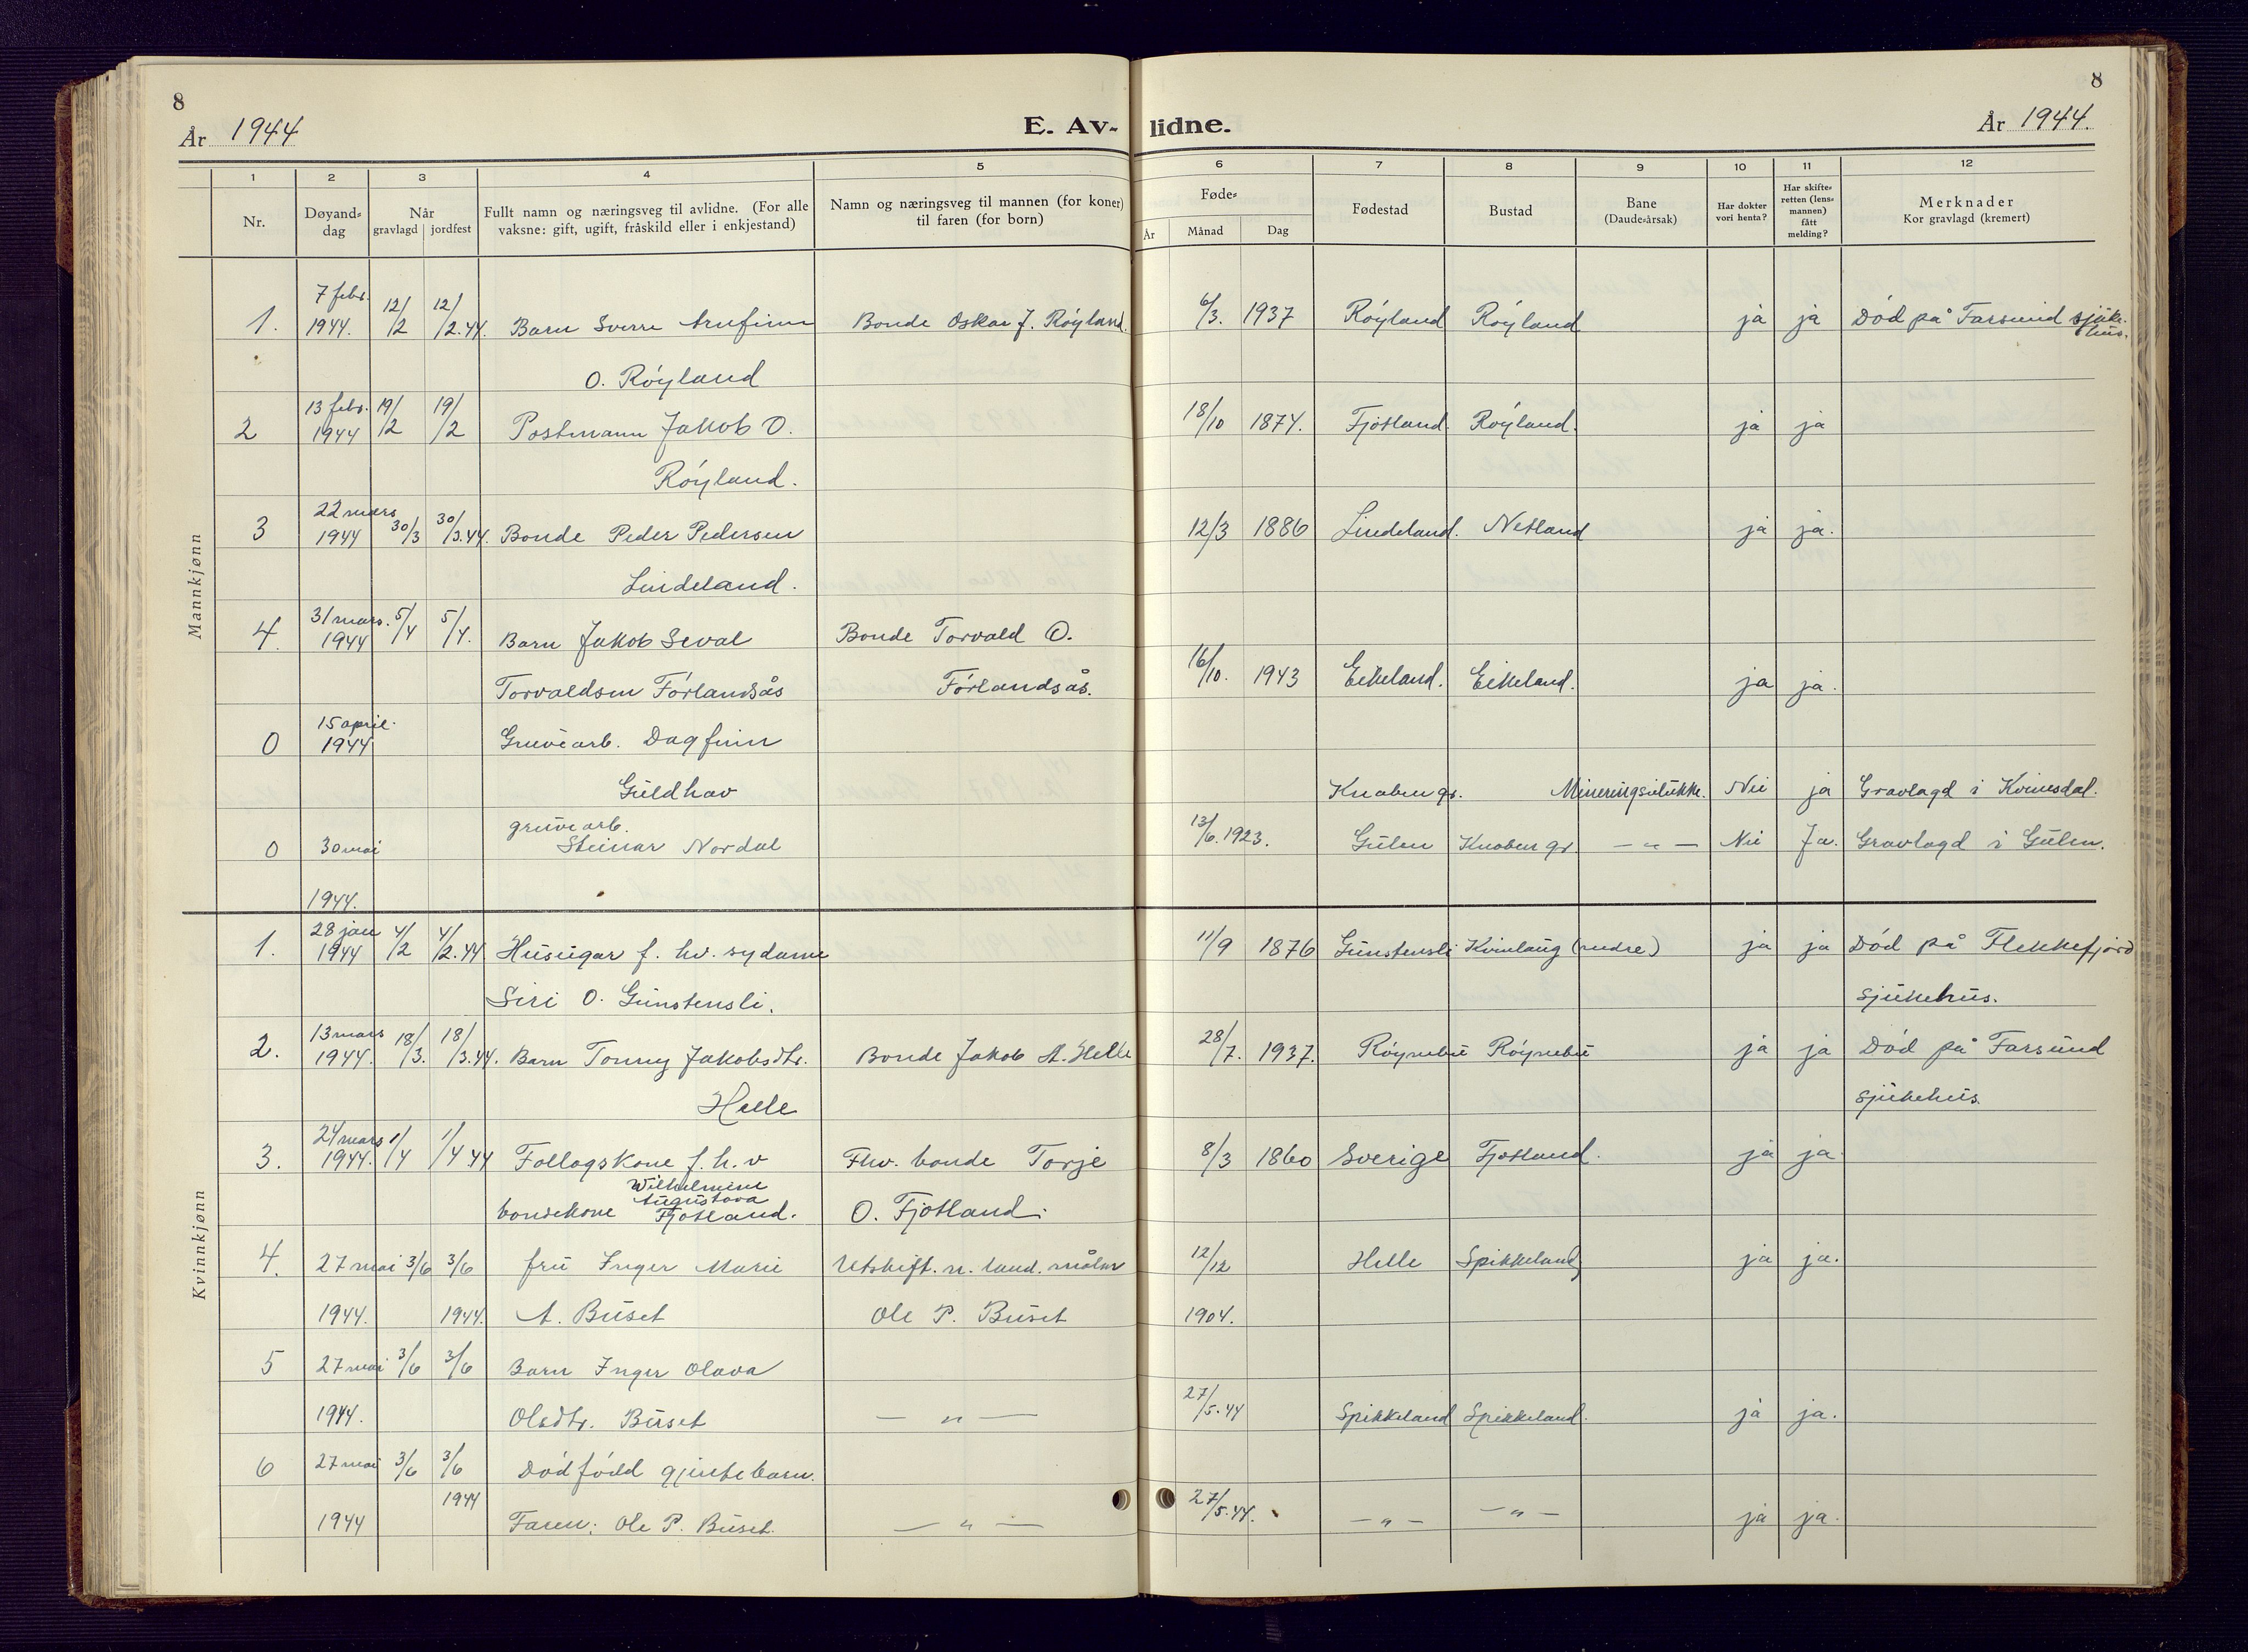 8
8
År 1944
E. Av-
lidne.
År 1944.
1 2 3 4 5 6 7 8 9 10 11 12
Nr.
Døyand-
dag
Når
gravlagd jordfest
Fullt namn og næringsveg til avlidne. (For alle
vaksne: gift, ugift, fråskild eller i enkjestand)
Namn og næringsveg til mannen (for koner)
til faren (for born)
Føde-
År Månad Dag
Fødestad
Bustad
Bane
(Daude-årsak)
Har dokter
vori henta?
Har skifte-
retten (lens-
mannen)
fått
melding?
Merknader
Kor gravlagd (kremert)
Mannkjønn
7 febr. 12/ 12/
1. 1944. 2 2.44. Barn Sverre Arnfinn Bonde Oskar J. Røyland. 6/3. 1937 Røyland Røyland ja ja Død på Farsund sjuke-
hus.
O. Røyland
13 febr. 19/ 19/
2 1944 2 2 Postmann Jakob O. 18/10 1874. Fjotland. Røyland. ja ja
Røyland.
22 mars
3 1944 30/3 30/3.44. Bonde Peder Pedersen 12/3 1886 Lindeland. Netland ja ja.
Lindeland.
31 mars.
4. 1944 5/4 5/4. Barn Jakob Seval Bonde Torvald O.
Torvaldsen Førlandsås Førlandsås. 16/10. 1943 Eikeland. Eikeland. ja ja.
15 april.
0 1944 Gruvearb. Dagfinn
Guldhav Knaben gr. Mineringsulukke. Nei ja Gravlagd i Kvinesdal.
gruvearb.
0 30 mai Steinar Nordal 13/6. 1923. Gulen Knaben gr. — " — Nei Ja. Gravlagd i Gulen.
1944.
Kvinnkjønn
28 jan
1. 1944 4/2 4/2.44 Huseigar f. hv. sydame 11/9 1876 Gunstensli Kvinlaug (nedre) ja ja Død på Flekkefjord
Siri O. Gunstensli. sjukehus.
13 mars
2. 1944. 18/3. 18/3.44. Barn Tonny Jakobsdtr. Bonde Jakob A. Helle 28/7. 1937. Røynebu Røynebu ja ja Død på Farsund
Helle sjukehus.
24 mars
3. 1944. 1/4 1/4 44 Follogskone f. h. v Fhv. bonde Torje 8/3 1860 Sverige Fjotland. ja ja.
Wilhelmine
Augustava
bondekone Fjotland. O. Fjotland.
4. 27 mai 3/6 3/6 fru Inger Marie Utskift. n. land. måler 12/12 Helle Spikkeland ja ja.
1944. 1944. A. Buset Ole P. Buset 1904.
5 27 mai 3/6 3/6 Barn Inger Olava
1944. Olsdtr. Buset — " — 27/5.44 Spikkeland Spikkeland. ja ja.
6 27 mai 3/6 3/6 Død født gjentebarn.
1944
1944 Faren: Ole P. Buset. — " — 27/5.44. — " — — " — ja ja.